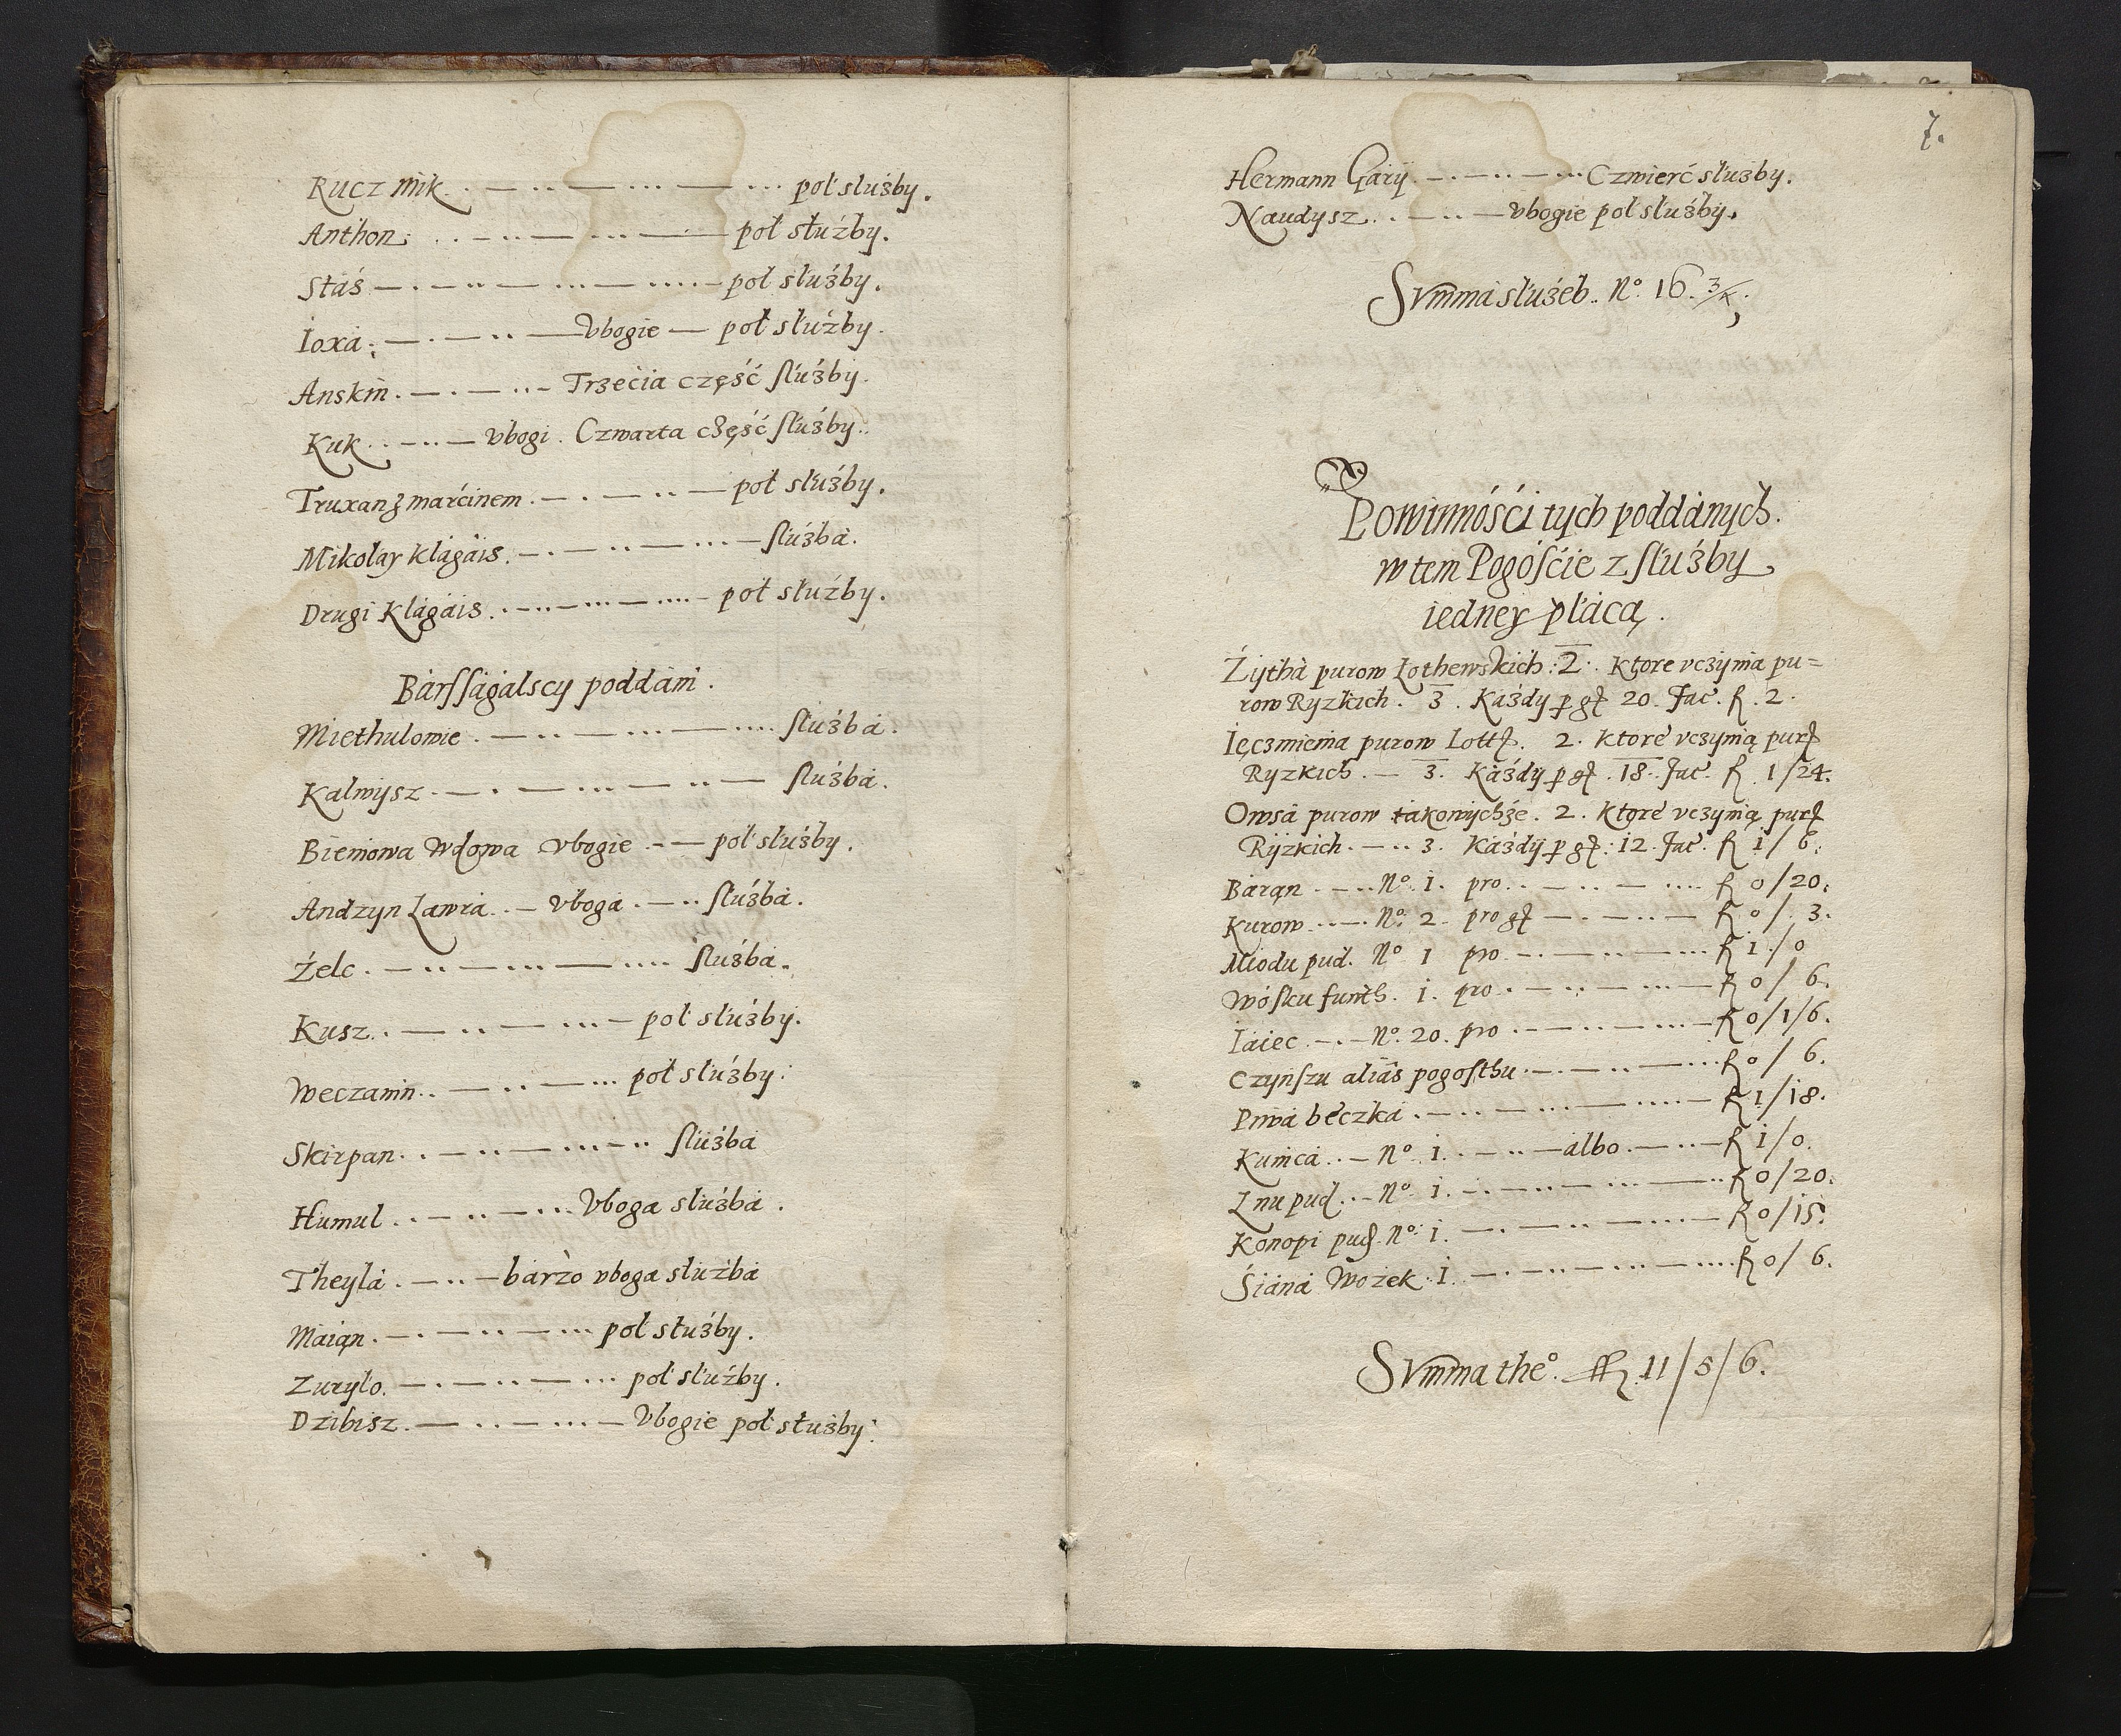 Ruczmik . — .. — ... — ... poł służby.
Anthon . .. — .. — ... — poł służby.
Staś — . — .. — ... — .... — poł służby.
Ioxa . — . — .. — vbogie — poł służby.
Anskin . — . — .. — Trzecia część służby.
Kuk .. — .. — vbogi . Czwarta część służby.
Truxan z marćinem . — . — .. — poł służby.
Mikołay Klagáis . — . — .. — ... — służba.
Drugi Klagáis . — .. — ... — .... — poł służby.
Barssagalscy poddáni .
Miethulowie . — .. — ... — .... służba.
Kalwysz . — . — ... — .. — służba.
Bieniowa Wdowa vbogie . — — poł służby.
Andzyn Lawra .. — vboga . — .. służba.
Żelc . — .. — ... — .... służba.
Kusz . — .. — ... — poł służby.
Weczanin .. — .. — ... poł służby.
Skirpan . . — .. — ... — .. służba
Humul .. — .. — ... vboga służba .
Theyla . — .. — bárzo vboga służba
Maian . — . — .. — ... poł służby.
Zuryło . — . — .. — ... poł służby.
Dzibisz . — .. — ... — vbogie poł służby.
7.
Hermann Gary . — . — .. — ... Czwierć służby.
Naudysz . . — .. — vbogie poł służby.
Summa służeb .. No. 16. 3/4.
Powinnośći tych poddánych.
w tem Pogośćie z służby
iedney płácą .
Żytha purow Lothewskich . 2 . Ktore vczynia pu=
row Ryzkich . 3 . Każdy p gł 20. fac. fl. 2.
Ięczmienia purow Lottz. 2. Ktore vczynią purz
Ryzkich . — 3. Każdy p gł . 18. fac. fl. 1/24.
Owsa purow takowychże . 2 . Ktore vczynią purz
Ryzkich . — .. 3. Każdy p gł . 12. fac. fl. 1/6.
Baran . — .. No. 1. pro . . — .. — .... fl 0/20.
Kurow . .. — . No. 2. pro gł — . — .. — fl 0/3.
Miodu pud. No 1 pro . — . — .. — ... fl 1/0
Wosku funth. 1. pro . — .. — ... — fl 0/6.
Iaiec . — . — No. 20. pro . — .. — ... — fl 0/1/6.
Czynszu aliás pogosthu . — . — .. — ... fl 0/6.
Piwa beczka . — .. — ... — .... — fl 1/18.
Kunica . . — No 1. . — .. — albo . — .. — fl 1/0.
Lnu pud . .. — No. 1. . — .. — ... — .. fl 0/20.
Konopi pud. No. 1. — . — .. — ... — fl 0/15.
Śiana Wozek . 1. — . — .. — ... — .... fl 0/6.
Summa theo. fl. 11/5/6.